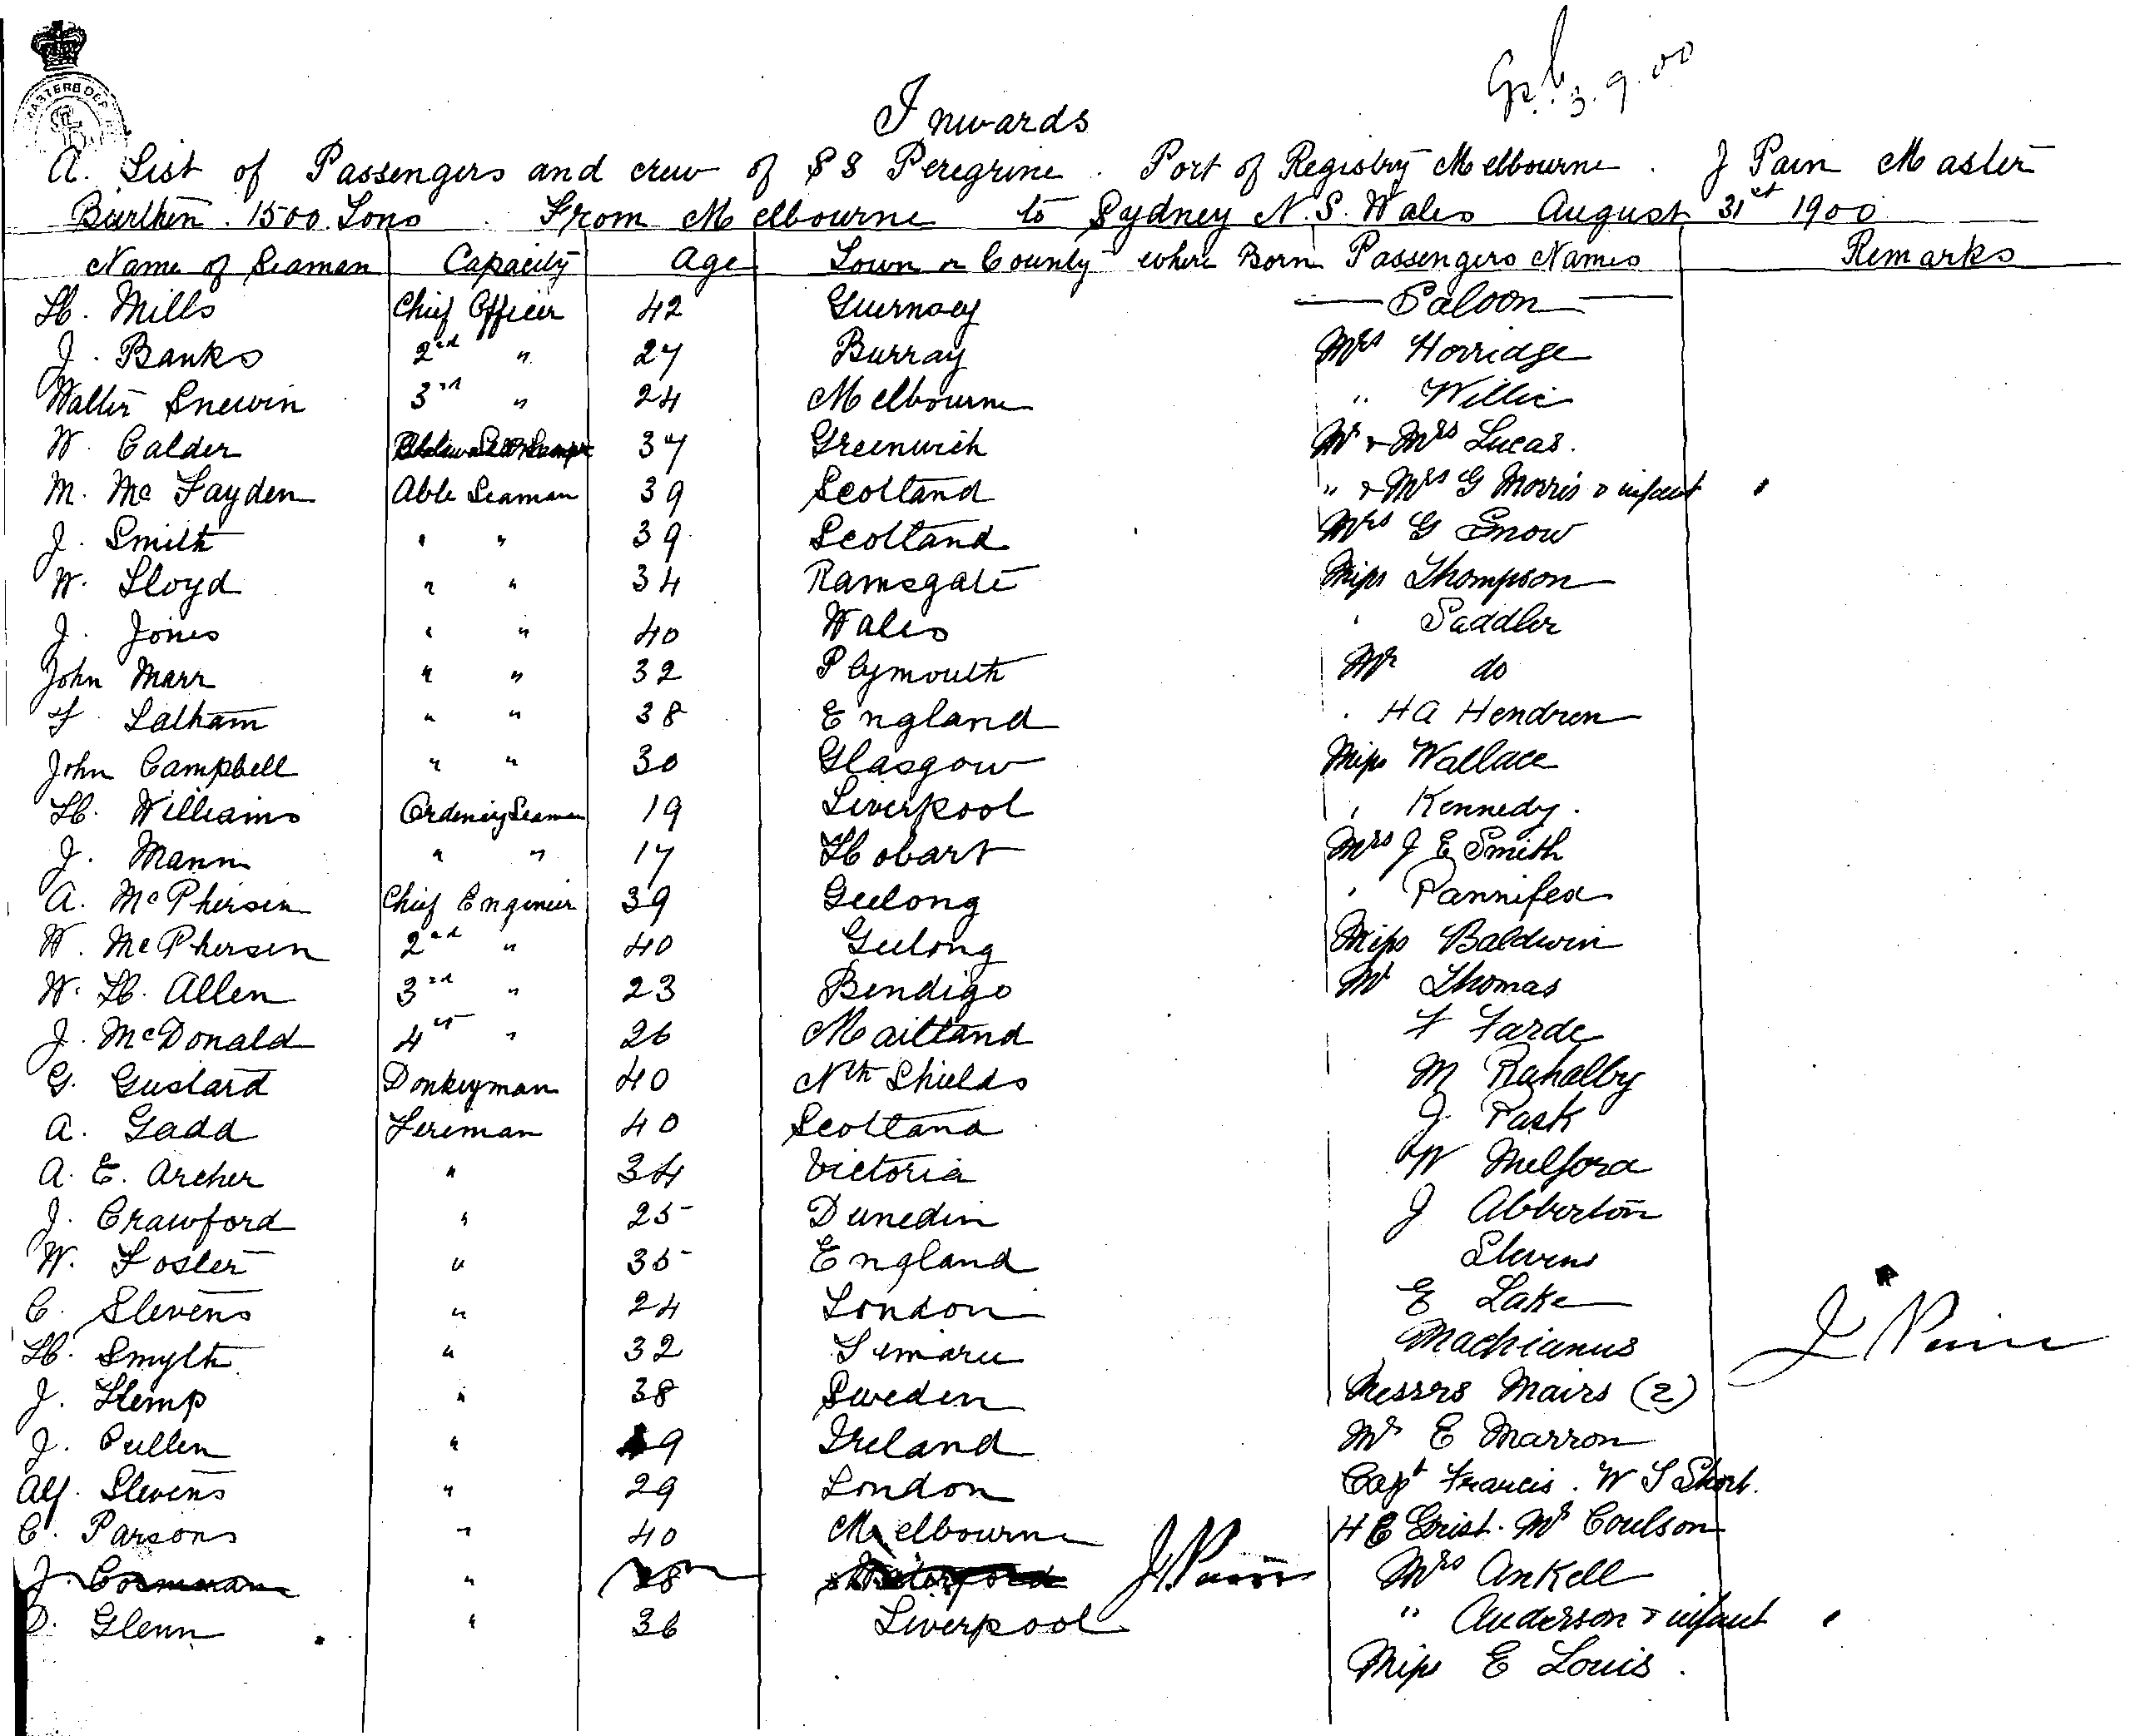 Inwards
3.9.00
A. List of Passengers and crew of SS Peregrine. Port of Registry Melbourne. J Pain Master
Burthen. 1500 Tons. From Melbourne to Sydney N.S. Wales August 31st 1900
Name of Seaman Capacity Age Town or County where Born Passengers Names Remarks
H. Mills Chief Officer 42 Guernsey — Saloon —
J. Banks 2nd " 27 Burray Mrs Horridge
Walter Snewin 3rd " 24 Melbourne " Willie
W. Calder 37 Greenwich Mr & Mrs Lucas.
M. McFayden Able Seaman 39 Scotland " & Mrs G Morris & infant
J. Smith " " 39 Scotland Mrs G Snow
W. Lloyd " " 34 Ramsgate Miss Thompson
J. Jones " " 40 Wales " Saddler
John Marr " " 32 Plymouth Mr do
F. Latham " " 38 England " H A Hendren
John Campbell " " 30 Glasgow Miss Wallace
H. Williams Ordeniry Seaman 19 Liverpool " Kennedy.
J. Mann " " 17 Hobart Mrs J E Smith
A. McPhersen Chief Engineer 39 Geelong " Pannifex
W. McPhersen 2nd " 40 Geelong Miss Baldwin
W. H. Allen 3rd " 23 Bendigo Mr Thomas
J. McDonald 4th " 26 Maitland F Farde
G. Gustard Donkeyman 40 Nth Shields M Rahalby
A. Gadd Fireman 40 Scotland J. Pask
A. E. Archer " 34 Victoria W Milford
J. Crawford " 25 Dunedin J Abberton
W. Foster " 35 England Stevens
C. Stevens " 24 London E Lake
H. Smyth " 32 Timaru
J. Hemp " 38 Sweden Messrs Mairs (2)
J. Cullen " 9 Ireland Mr E Marron
Alf. Stevens " 29 London Capt Francis. W S Short.
C. Parsons " 40 Melbourne H E Grist. Mr Coulson
J. " 28 Waterford J. Pain Mrs Ankell
D. Glenn " 36 Liverpool " Anderson & infant
Miss E Louis.
J Pain